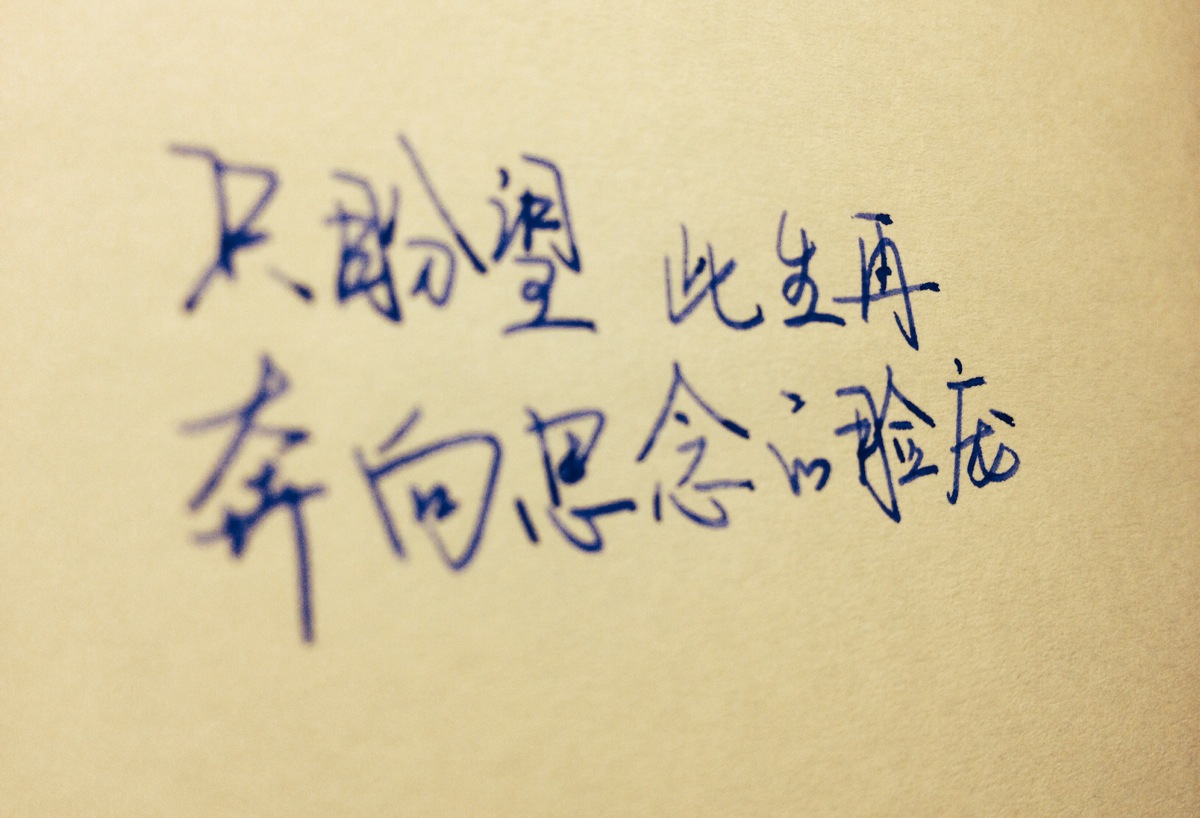 只盼望 此生再
奔向思念的脸庞